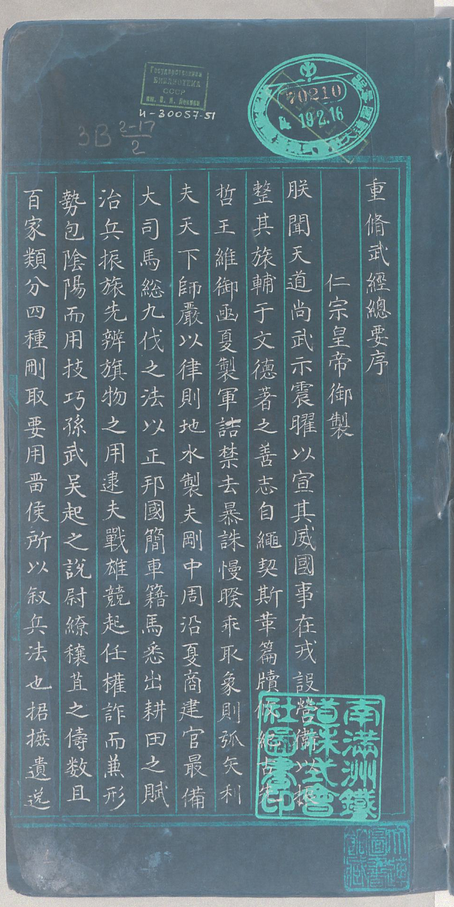 Государственная
БИБЛИОТЕКА
СССР
им. В. И. Ленина
И-30057-51
3В 2-17/2
70210
19.2.16
重脩武經總要序
仁宗皇帝御製
朕聞天道尚武示震曜以宣其威國事在戎設營衛以
整其旅輔于文德著之善志自繩契斯革篇牘
哲王維御區夏製軍詰禁去暴誅慢睽乖取象則弧矢利
夫天下師嚴以律則地水製夫剛中周沿夏商建官最備
大司馬總九伐之法以正邦國簡車籍馬悉出耕田之賦
治兵振旅先辨旗物之用逮夫戰雄競起任權詐而兼形
勢包陰陽而用技巧孫武吳起之說尉繚穰苴之儔數且
百家類分四種刪取要用畱侯所以叙兵法也捃摭遺逸
南滿洲鐵
道株式會
社圖書印